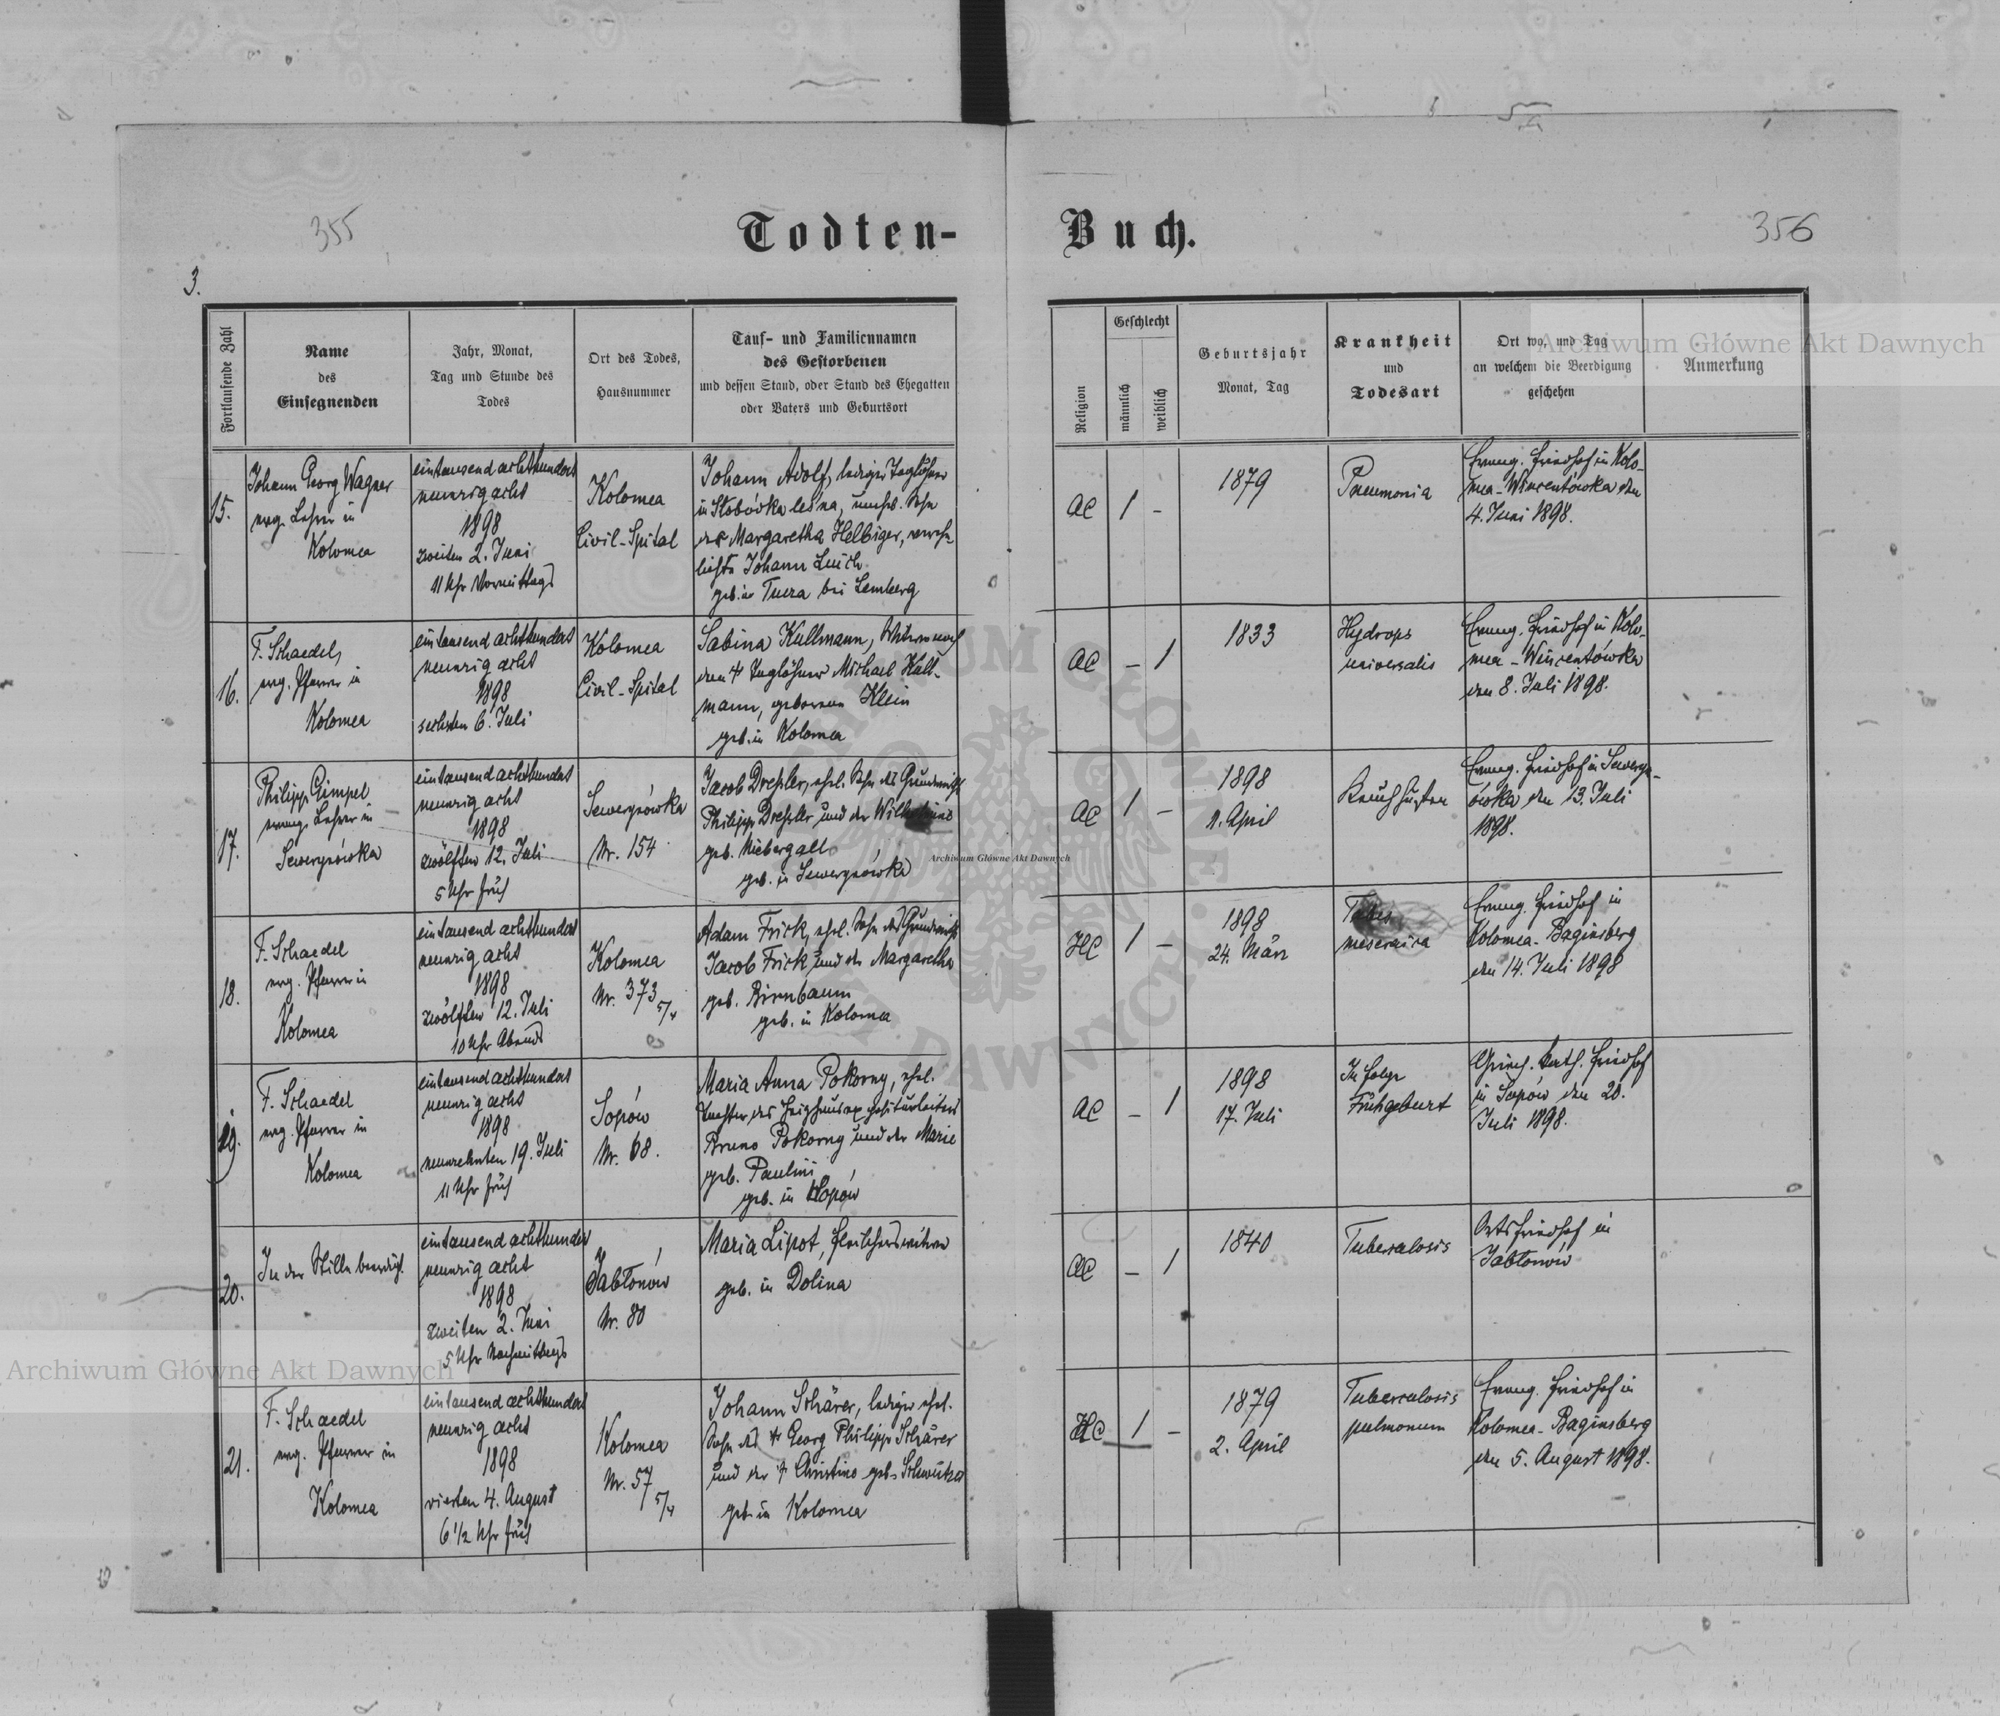 355
Todten-
Buch.
356
3.
Fortlaufende Zahl
Name
des
Einsegnenden
Jahr, Monat,
Tag und Stunde des
Todes
Ort des Todes,
Hausnummer
Tauf- und Familiennamen
des Gestorbenen
und dessen Stand, oder Stand des Ehegatten
oder Vaters und Geburtsort
Religion
Geschlecht
männlich
weiblich
Geburtsjahr
Monat, Tag
Krankheit
und
Todesart
Ort wo, und Tag
an welchem die Beerdigung
geschehen
Anmerkung
15.
Johann Georg Wagner
evg. Lehrer in
Kolomea
eintausend achthundert
neunzig acht
1898
zweiten 2. Juni
11 Uhr Vormittags
Kolomea
Civil-Spital
Johann Adolf, lediger Taglöhner
in Słobódka leśna, unehel. Sohn
der Margaretha Helbiger, vereh-
lichte Johann
geb. in bei Lemberg
AC
1
-
1879
Pneumonia
Evang. Friedhof in Kolo-
mea-Wincentówka den
4. Juni 1898.
16.
F. Schaedel,
evg. Pfarrer in
Kolomea
eintausend achthundert
neunzig acht
1898
sechsten 6. Juli
Kolomea
Civil-Spital
Sabina Kullmann, Witwe nach
dem † Taglöhner Michael Kull-
mann, geborene Klein
geb. in Kolomea
AC
-
1
1833
Hydrops
universalis
Evang. Friedhof in Kolo-
mea-Wincentówka
den 8. Juli 1898.
17.
Philipp Gimpel
evang. Lehrer in
Sewerynówka
eintausend achthundert
neunzig acht
1898
zwölften 12. Juli
5 Uhr früh
Sewerynówka
Nr. 154
Jacob Dreßler, ehel. Sohn des Grundwirth
Philipp Dreßler und der Wilhelmine
geb. Niebergall
geb. in Sewerynówka
AC
1
-
1898
1. April
Keuchhusten
Evang. Friedhof in Seweryn-
ówka den 13. Juli
1898.
18.
F. Schaedel
evg. Pfarrer in
Kolomea
eintausend achthundert
neunzig acht
1898
zwölften 12. Juli
10 Uhr Abends
Kolomea
Nr. 373 5/4
Adam Frick, ehel. Sohn des Grundwirth
Jacob Frick und der Margaretha
geb. Birnbaum
geb. in Kolomea
HC
1
-
1898
24. März
Tabes
meseraica
Evang. Friedhof in
Kolomea-Baginsberg
den 14. Juli 1898
19.
F. Schaedel
evg. Pfarrer in
Kolomea
eintausend achthundert
neunzig acht
1898
neunzehnten 19. Juli
11 Uhr früh
Sopów
Nr. 68.
Maria Anna Pokorny, ehel.
Tochter des
Bruno Pokorny und der Marie
geb. Paulini
geb. in Sopów
AC
-
1
1898
17. Juli
In folge
Frühgeburt
Griech. kath. Friedhof
in Sopów den 20.
Juli 1898.
20.
In der Stille beerdigt.
eintausend achthundert
neunzig acht
1898
zweiten 2. Juni
5 Uhr Nachmittags
Jabłonów
Nr. 80
Maria Lipot, Fleischerswitwe
geb. in Dolina
AC
-
1
1840
Tuberculosis
Ortsfriedhof in
Jabłonów
21.
F. Schaedel
evg. Pfarrer in
Kolomea
eintausend achthundert
neunzig acht
1898
vierten 4. August
6 1/2 Uhr früh
Kolomea
Nr. 57 5/4
Johann Schärer, lediger ehel.
Sohn des † Georg Philipp Schärer
und der † Christine geb.
geb. in Kolomea
HC
1
-
1879
2. April
Tuberculosis
pulmonum
Evang. Friedhof in
Kolomea-Baginsberg
den 5. August 1898.
Archiwum Główne Akt Dawnych
Archiwum Główne Akt Dawnych
Archiwum Główne Akt Dawnych